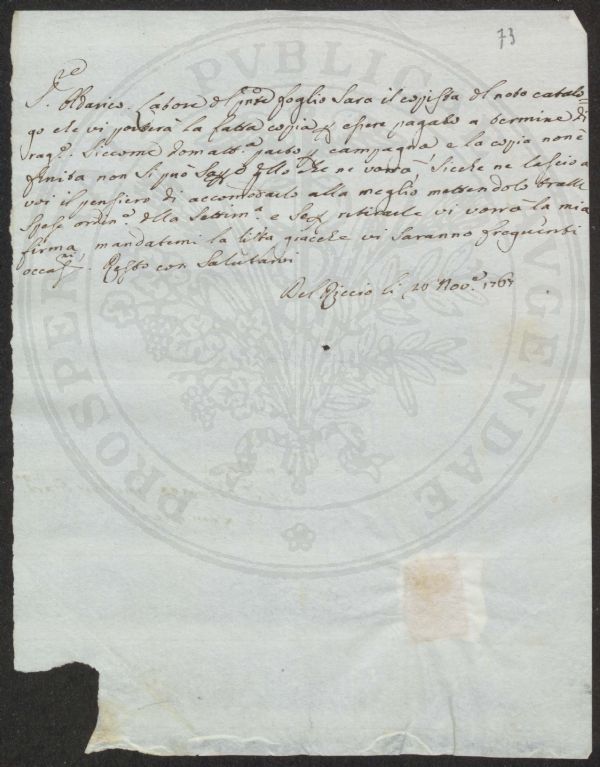 73
S.re Oldarico. Latore del pnte foglio sarà il copista del noto catalo-
go che vi porterà la fatta copia p essere pagato a termine di
rag.e Siccome domatt.a parto p campagna e la copia non è
finita non si può sap.e qllo che ne vorrà, sicche ne lascio a
voi il pensiero di accomodarlo alla meglio mettendolo tralle
spese ordin.e della settim.a e se p ritirarle vi vorrà la mia
firma, mandatemi la lista giacche vi saranno frequenti
occa.ni. Resto con salutarvi
Del Riccio li 20 Nov.e 1767
PROSPERITATI PVBLICAE AVGENDAE